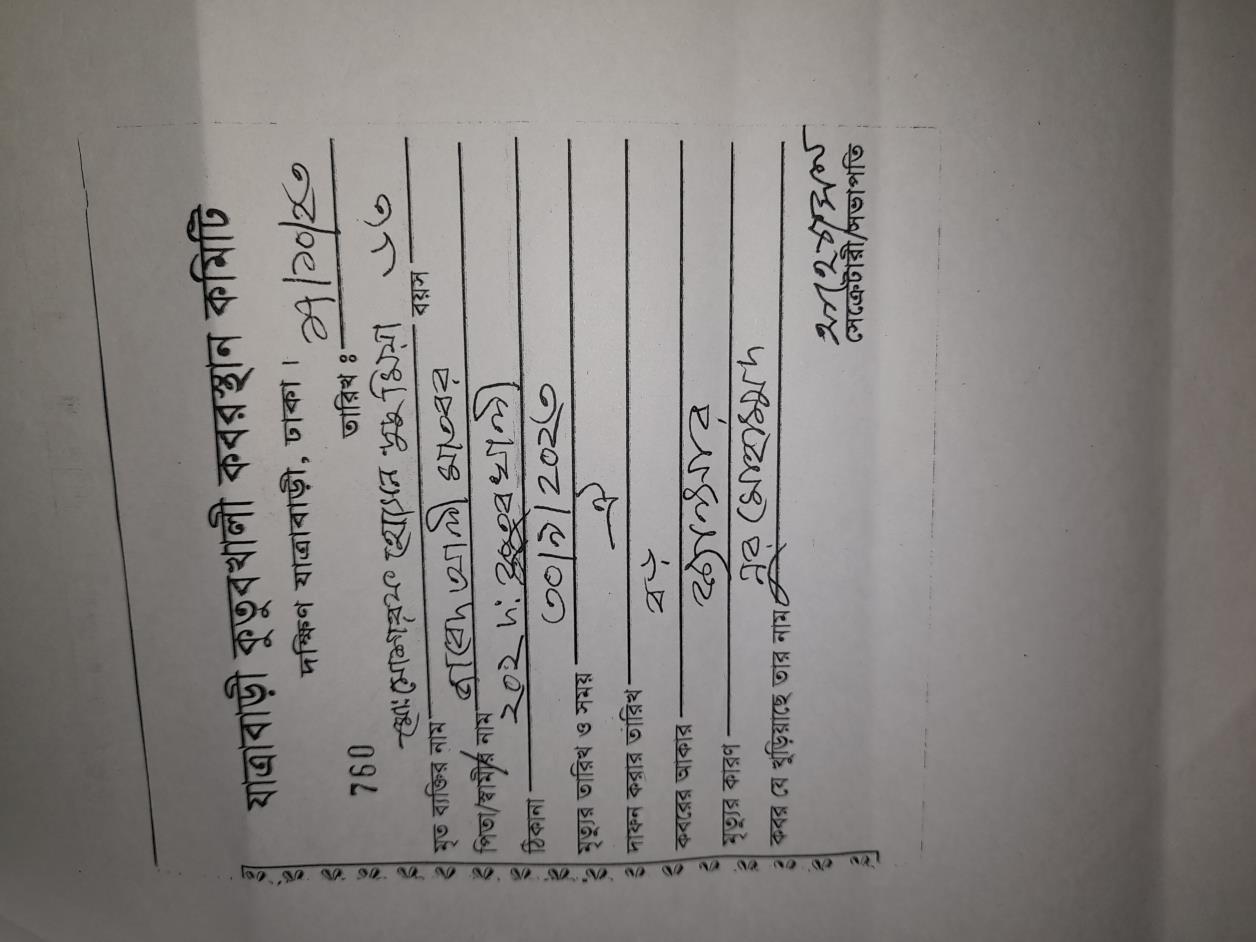 যাত্রাবাড়ী কুতুবখালী কবরস্থান কমিটি
দক্ষিণ যাত্রাবাড়ী, ঢাকা।
760 তারিখ ঃ ১৭/১০/২৩
মৃত ব্যক্তির নাম মোঃ মোশারফ হোসেন দুদু মিয়া বয়স ৮৩
পিতা/স্বামীর নাম আলী মাতবর
ঠিকানা ২০২ দঃ
মৃত্যুর তারিখ ও সময় ৩০/৯/২০২৩
দাফন করার তারিখ ঐ
কবরের আকার বড়
মৃত্যুর কারণ
কবর যে খুড়িয়াছে তার নাম নুর মোহাম্মদ
সেক্রেটারী/সভাপতি